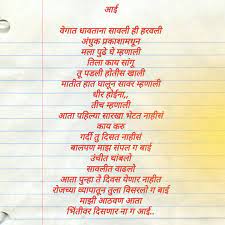 आई
वेगात धावताना सावली ही हरवली
अंधुक प्रकाशामधून
मला पुढे घे म्हणाली
तिला काय सांगू
तू पडली होतीस खाली
मातीत हात घालून सावर म्हणाली
धीर होईना,,
तीच म्हणाली
आता पहिल्या सारखा भेटत नाहीसं
काय करु
गर्दी तु दिसत नाहीसं
बालपण माझं संपल ग बाई
उंचीत थांबलो
सावलीत वाढलो
आता पुन्हा ते दिवस येणार नाहीत
रोजच्या व्यापातून तुला विसरलो ग बाई
माझी आठवण आता
भिंतीवर दिसणार ना ग आई..